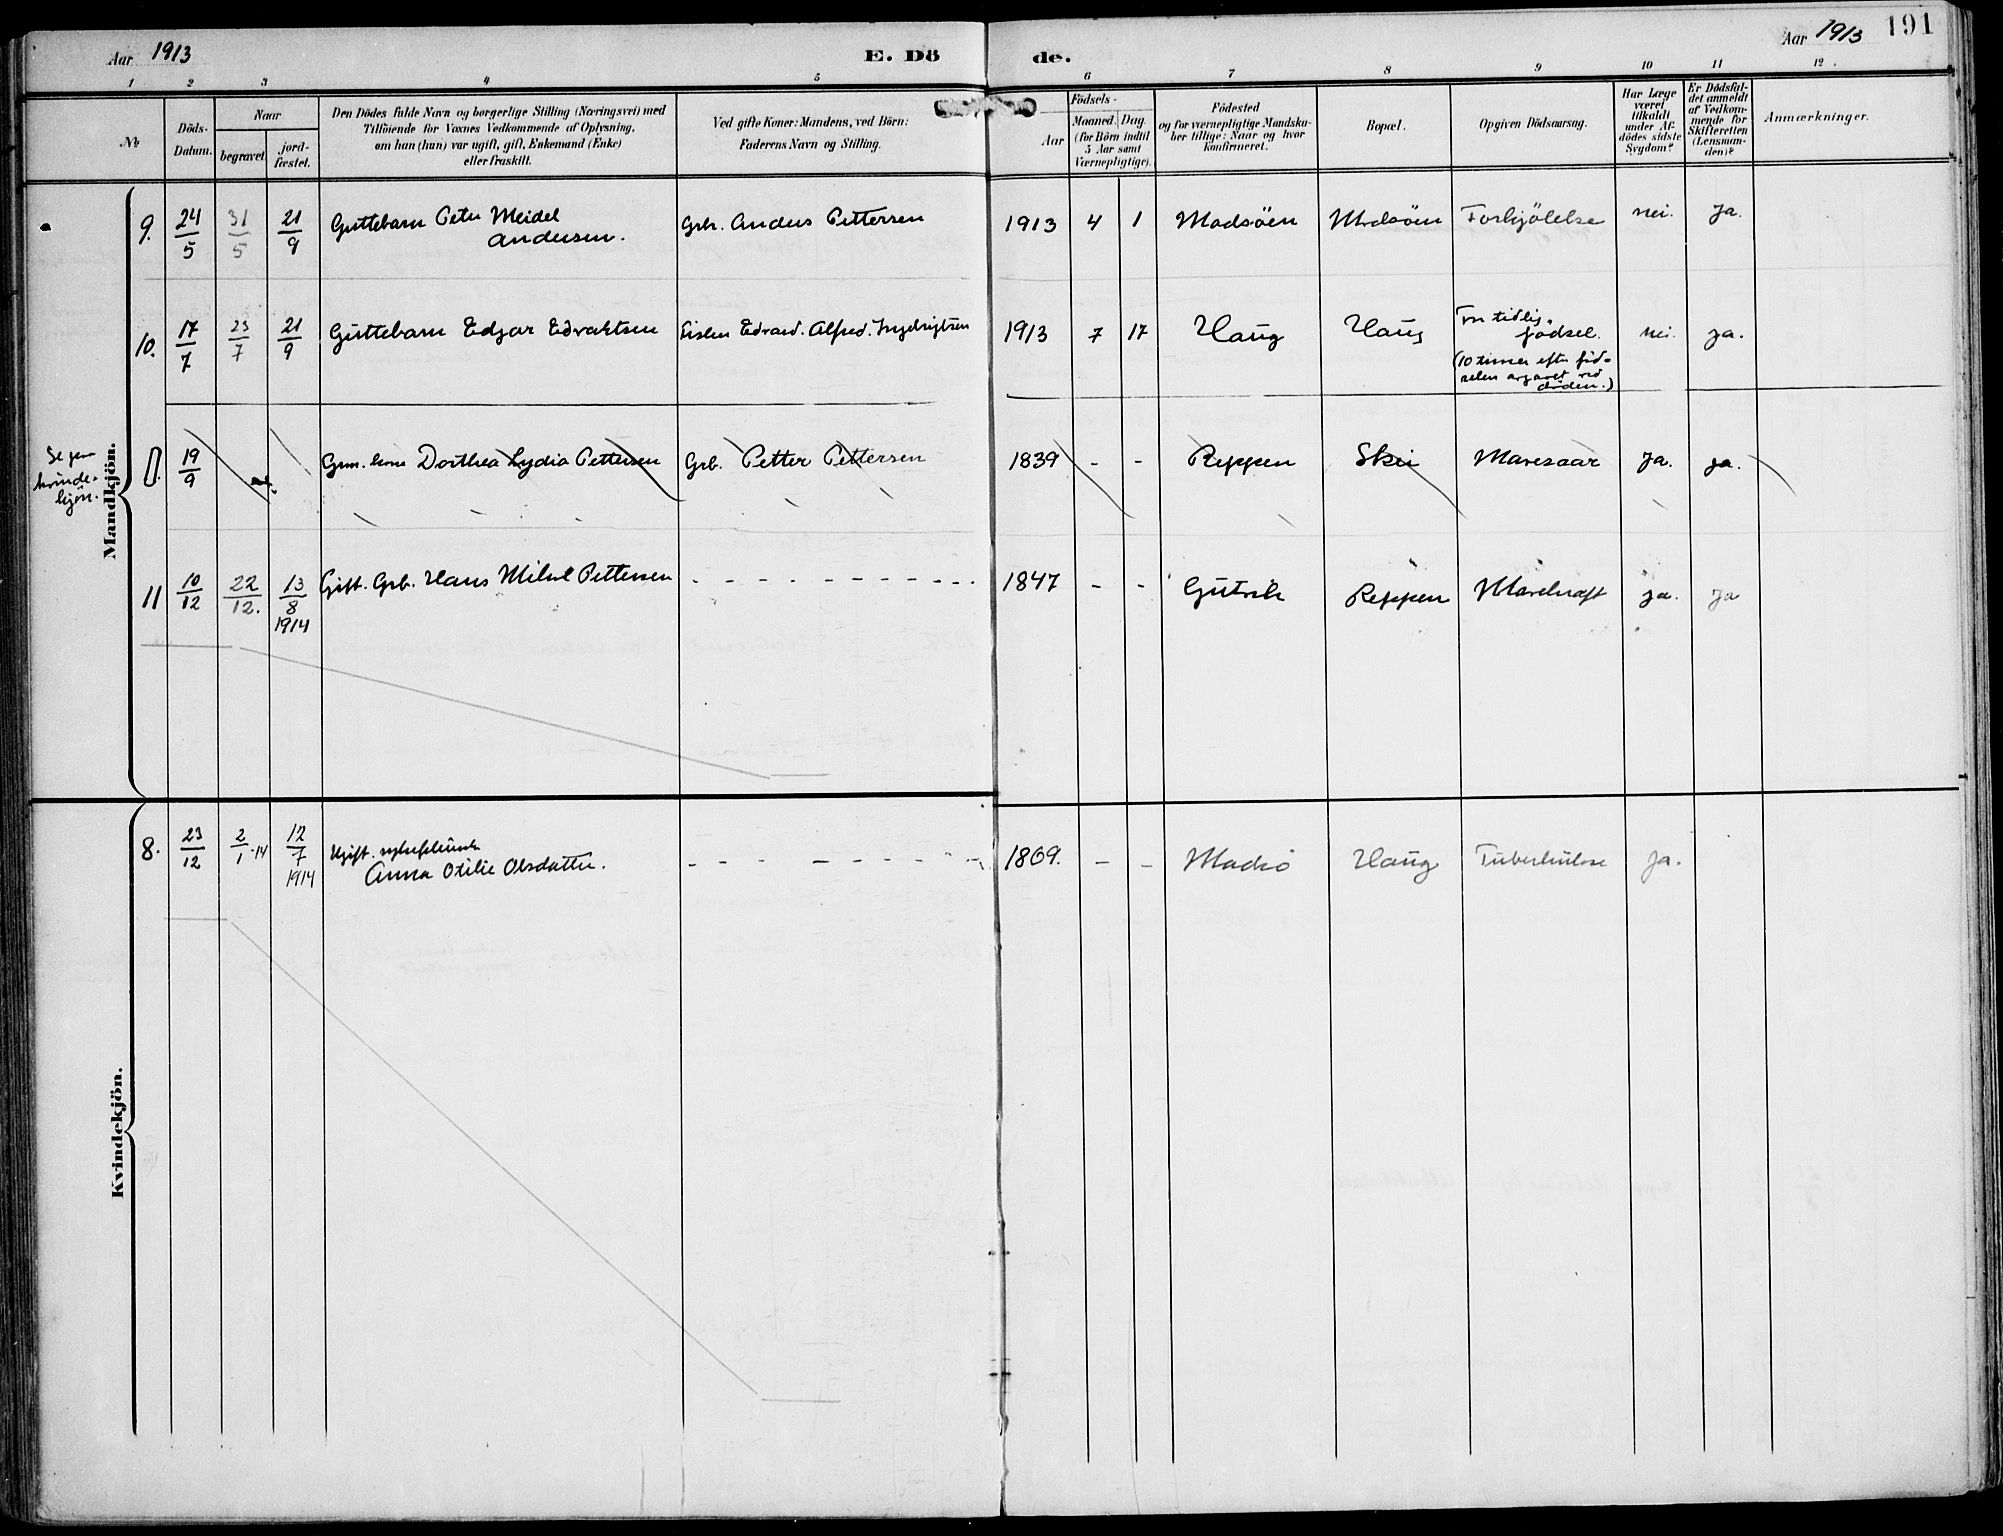 Aar 1913
E. Dö
de.
Aar 1913
191
1 2 3 4 5 6 7 8 9 10 11 12
No
Döds-
Datum.
Naar
begravet.
jord-
fæstet.
Den Dödes fulde Navn og borgerlige Stilling (Næringsvei) med
Tilföiende for Voxnes Vedkommende af Oplysning,
om han (hun) var ugift, gift, Enkemand (Enke)
eller fraskilt.
Ved gifte Koner: Mandens, ved Börn:
Faderens Navn og Stilling.
Födsels-
Aar
Maaned.
Dag.
(for Börn indtil
5 Aar samt
Værnepligtige).
Födested
og for værnepligtige Mandska-
ber tillige: Naar og hvor
Konfirmeret.
Bopæl.
Opgiven Dödsaarsag.
Har Læge
været
tilkaldt
under Af-
dödes sidste
Sygdom?
Er Dödsfal-
det anmeldt
af Vedkom-
mende for
Skifteretten
(Lensman-
den)?
Anmærkninger.
Mandkjön.
9. 24/5 31/5 21/9 Guttebarn Peter Meidel
Andersen.
Grb. Anders Pettersen 1913 4 1 Madsöen Madsöen Forkjölelse nei. Ja.
10. 17/7 23/7 21/9 Guttebarn Edgar Edvartsen Edvard. Alfred. 1913 7 17 Haug Haug
For tidlig
födsel.
(10 timer efter föd-
selen ved
döden.)
nei. ja.
Se
kvinde-
kjön.
19/9 Dorthea Lydia Pettersen Grb. Petter Pettersen 1839 - - Reppen Skei Ja. ja.
11 10/12 22/12. 13/8 1914 Gift. Grb. Hans Pettersen 1847 - - Reppen ja. ja
Kvindekjön.
8. 23/12 2/1-14 12/7 1914 Ugift.
Anna Otilie Olsdatter.
1869. - - Madsö Haug Tuberkulose ja.